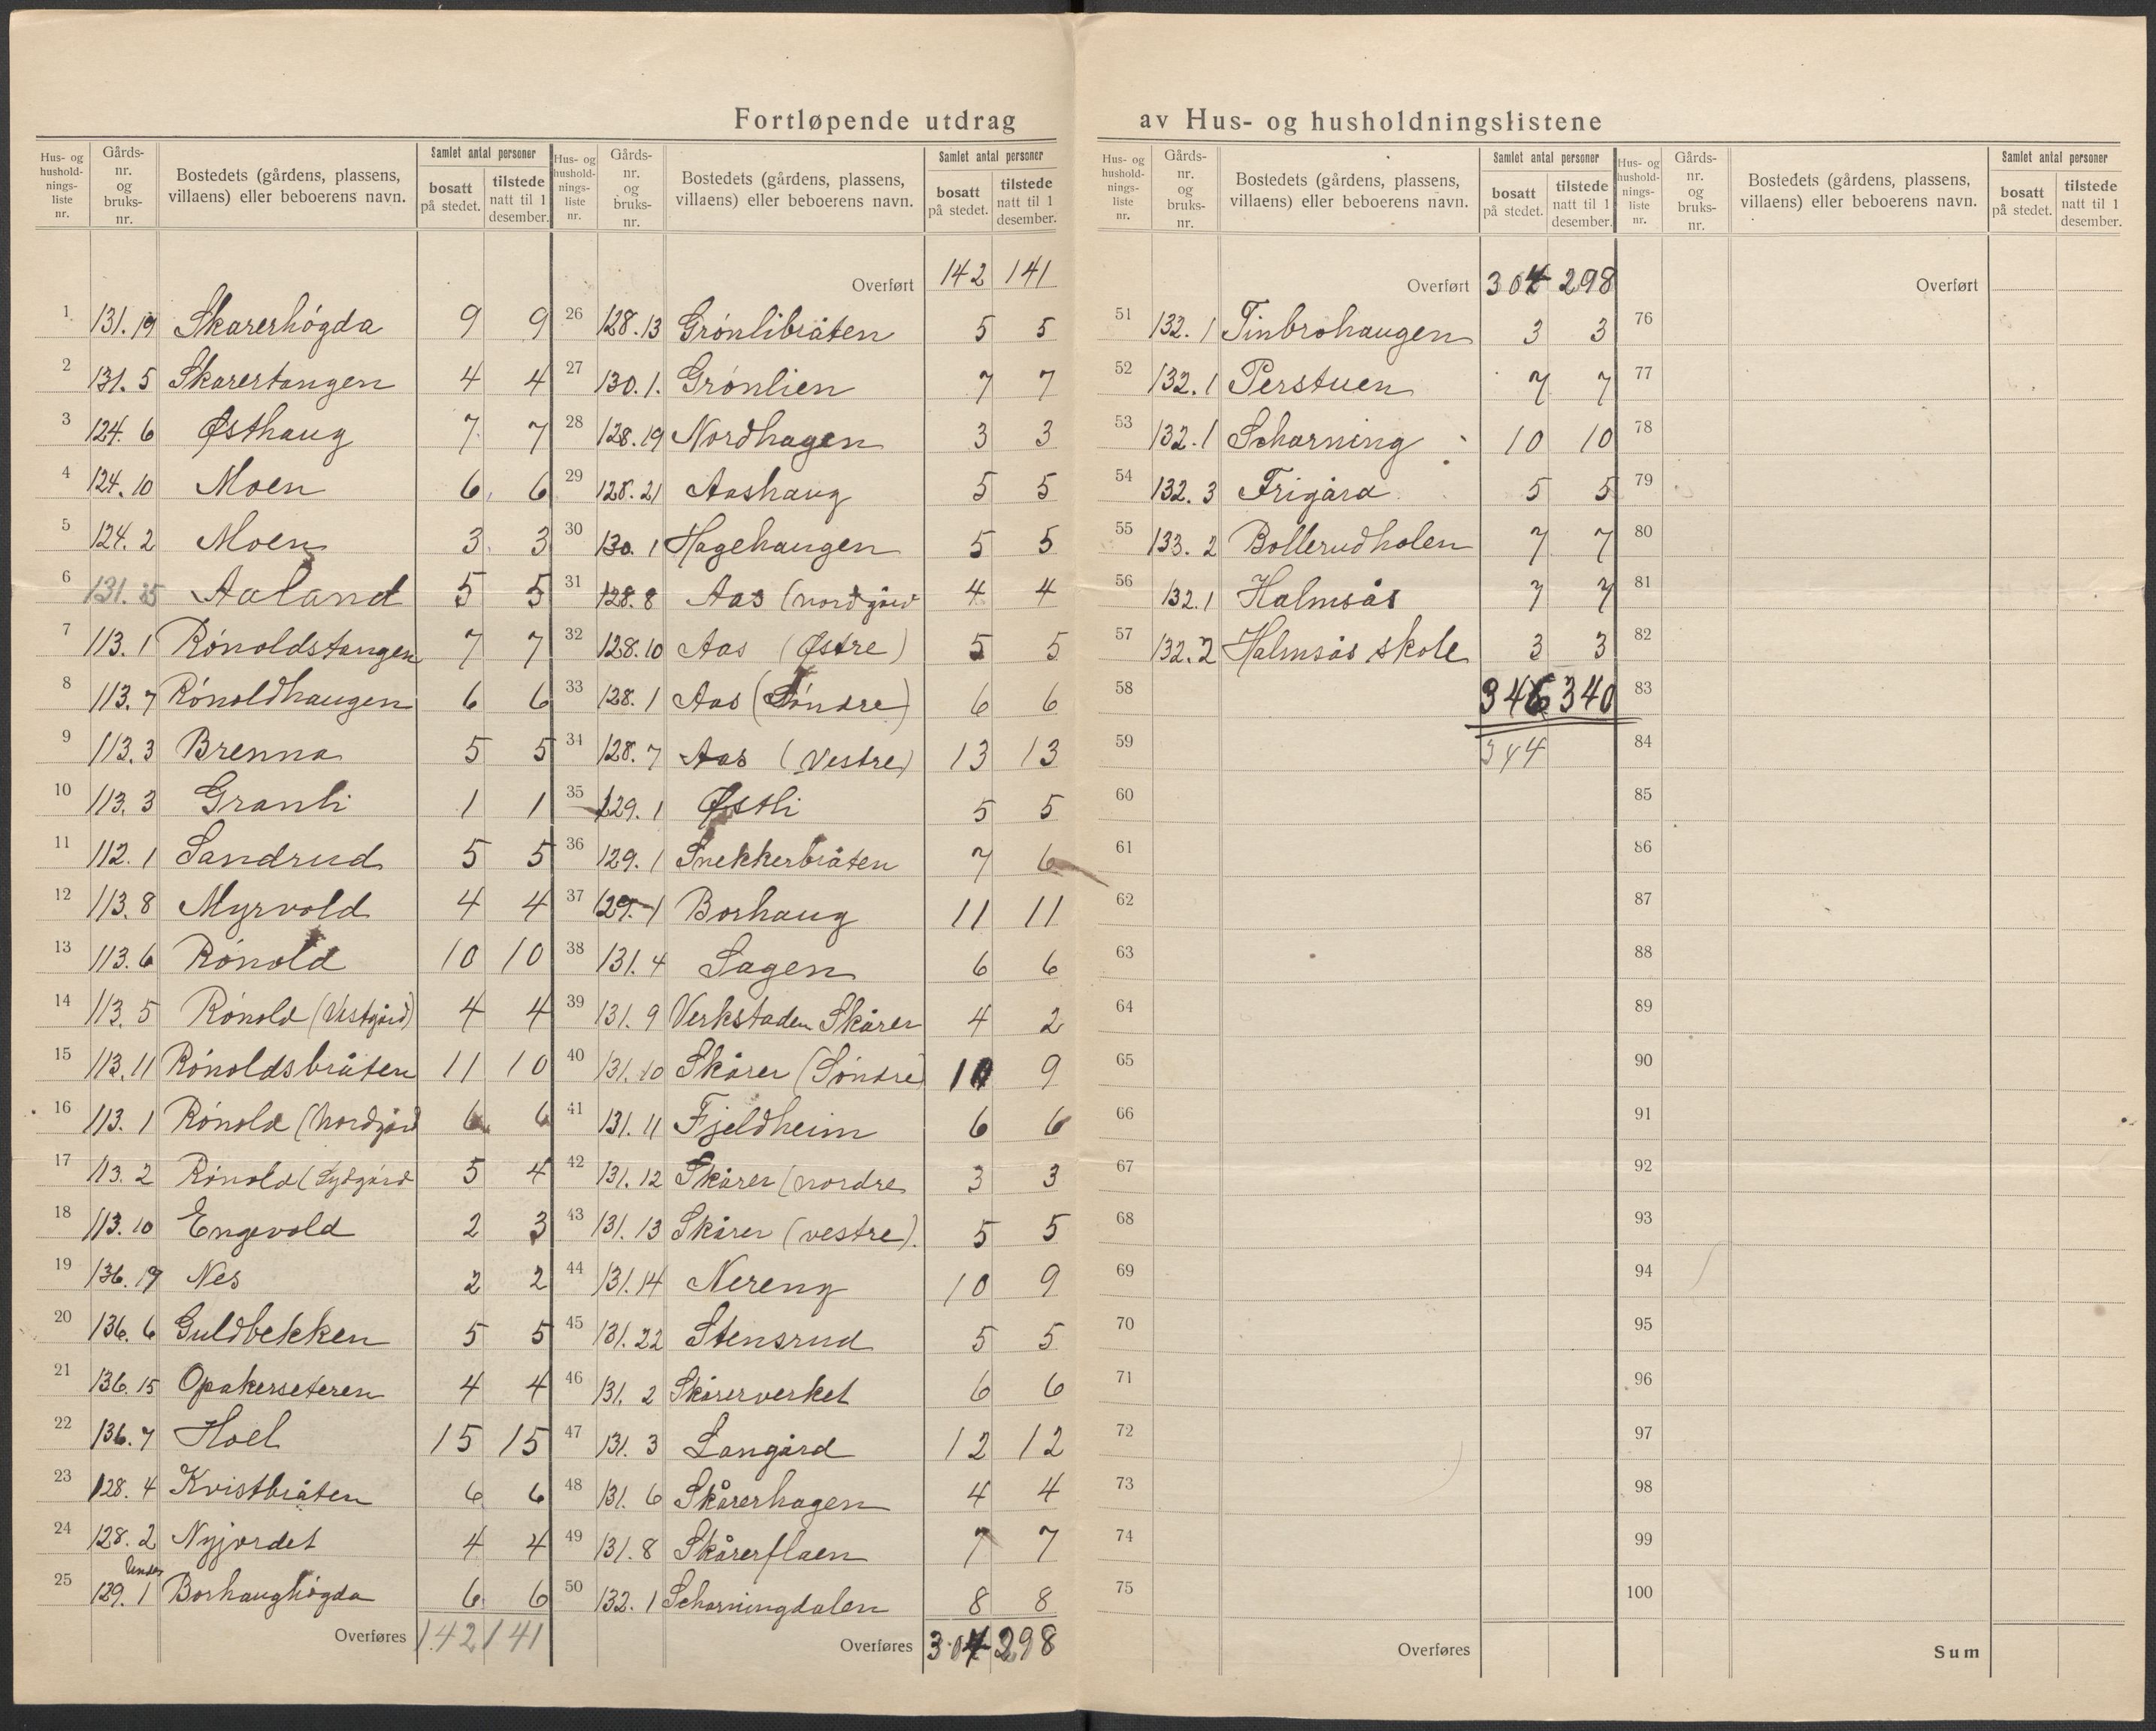 Fortløpende utdrag av Hus- og husholdningslistene
Hus- og husholdnings- liste nr. Gårds- nr. og bruks- nr. Bostedets (gårdens, plassens, villaens) eller beboerens navn. Samlet antal personer bosatt på stedet. tilstede natt til 1 desember.
1 131. 19 Skarerhögda 9 9
2 131. 5 Skarertangen 4 4
3 124. 6 Østhaug 7 7
4 124. 10 Moen 6 6
5 124. 2 Moen 3 3
6 131. 25 Aaland 5 5
7 113. 1 Rónoldstangen 7 7
8 113. 7 Rónoldhaugen 6 6
9 113. 3 Brenna 5 5
10 113. 3 Granli 1 1
11 112. 1 Sandrud 5 5
12 113. 8 Myrvold 4 4
13 113. 6 Rónold 10 10
14 113. 5 Rónold (Vestgård) 4 4
15 113. 11 Rónoldsbråten 11 10
16 113. 1 Rónold (Nordgård 6 6
17 113. 2 Rónold (Sydgård 5 4
18 113. 10 Engevold 2 3
19 136. 19 Nes 2 2
20 136. 6 Guldbekken 5 5
21 136. 15 Opakerseteren 4 4
22 136. 7 Hoel 15 15
23 128. 4 Kvistbråten 6 6
24 128. 2 Nyjordet 4 4
Under
25 129. 1 Borhaughögda 6 6
Overføres 142 141
Hus- og husholdnings- liste nr. Gårds- nr. og bruks- nr. Bostedets (gårdens, plassens, villaens) eller beboerens navn. Samlet antal personer bosatt på stedet. tilstede natt til 1 desember.
Overført 142 141
26 128. 13 Grónlibråten 5 5
27 130. 1. Grónlien 7 7
28 128. 19 Nordhagen 3 3
29 128. 21 Aashaug 5 5
30 130. 1 Hagehaugen 5 5
31 128. 8 Aas (nordgård 4 4
32 128. 10 Aas (Østre) 5 5
33 128. 1 Aas (Sóndre) 6 6
34 128. 7 Aas (Vestre) 13 13
35 129. 1 Østli 5 5
36 129. 1 Snekkerbråten 7 6
37 129. 1 Borhaug 11 11
38 131. 4 Sagen 6 6
39 131. 9 Verkstaden Skårer 4 2
40 131. 10 Skårer (Sóndre) 10 9
41 131. 11 Fjeldheim 6 6
42 131. 12 Skårer (nordre 3 3
43 131. 13 Skårer (vestre). 5 5
44 131. 14 Nereng 10 9
45 131. 22 Stensrud 5 5
46 131. 2 Skårerverket 6 6
47 131. 3 Langård 12 12
48 131. 6 Skårerhagen 4 4
49 131. 8 Skårerflaen 7 7
50 132. 1 Scharningdalen 8 8
Overføres 304 298
Hus- og husholdnings- liste nr. Gårds- nr. og bruks- nr. Bostedets (gårdens, plassens, villaens) eller beboerens navn. Samlet antal personer bosatt på stedet. tilstede natt til 1 desember.
Overført 304 298
51 132. 1 Tinbrohaugen 3 3
52 132. 1 Perstuen 7 7
53 132. 1 Scharning 10 10
54 132. 3 Frigård 5 5
55 133. 2 Bollerudholen 7 7
56 132. 1 Halmsås 7 7
57 132. 2 Halmsås skole 3 3
58 346 340
59 344
60
61
62
63
64
65
66
67
68
69
70
71
72
73
74
75
Overføres
Hus- og husholdnings- liste nr. Gårds- nr. og bruks- nr. Bostedets (gårdens, plassens, villaens) eller beboerens navn. Samlet antal personer bosatt på stedet. tilstede natt til 1 desember.
Overført
76
77
78
79
80
81
82
83
84
85
86
87
88
89
90
91
92
93
94
95
96
97
98
99
100
Sum